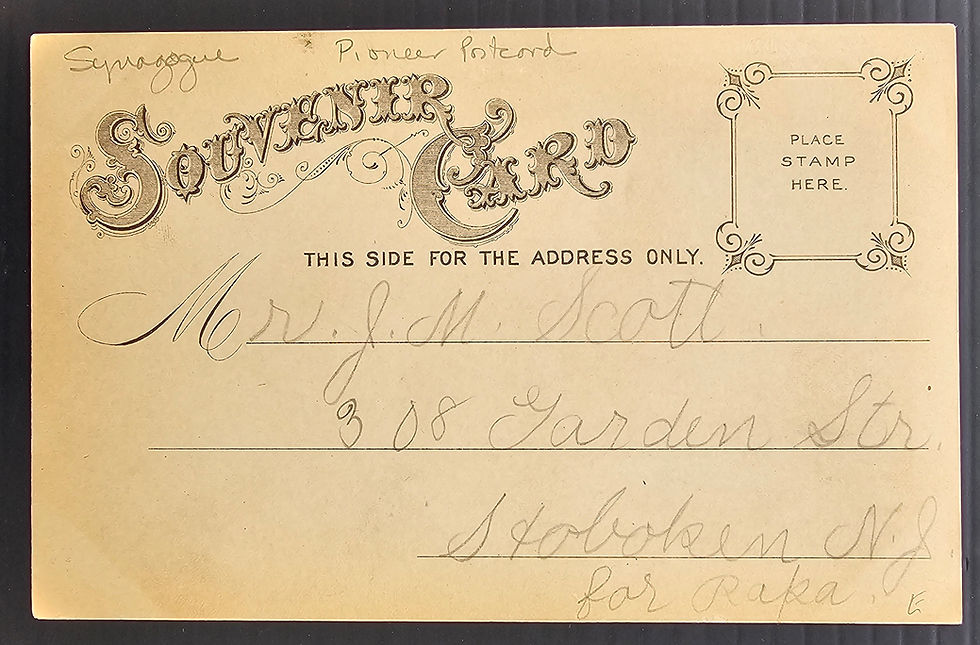 Synagogue Pioneer Postcard
SOUVENIR CARD
PLACE
STAMP
HERE.
THIS SIDE FOR THE ADDRESS ONLY.
Mr. J. M. Scott.
308 Garden Str.
Hoboken N.J
for Papa. E